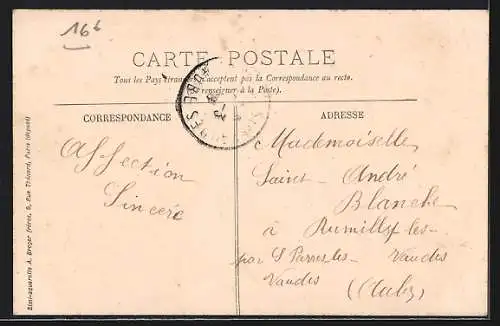 16 b
CARTE POSTALE
Tous les Pays étrangers n'acceptent pas la Correspondance au recto.
(Se renseigner à la Poste).
CORRESPONDANCE
Affection
Sincère
ADRESSE
Mademoiselle
Saint-André
Blanche
à Rumilly les-
par S Parres-les- Vaudes
Vaudes (Aube)
Simi-aquarelle A. Breger frères, 9, Rue Thénard, Paris (déposé)